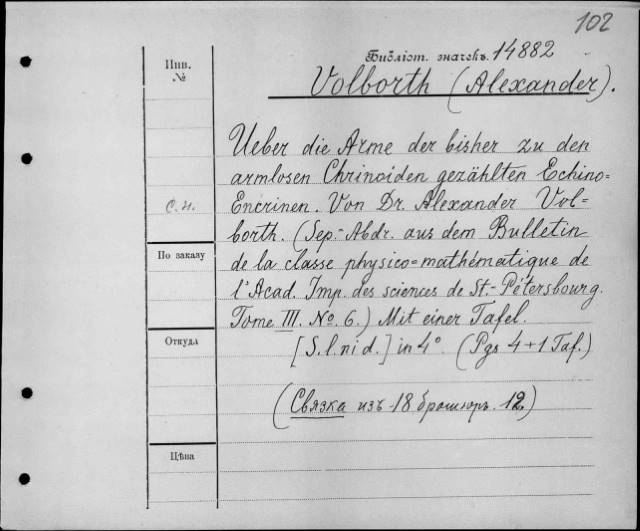 102
Библіот. значекъ. 14882
Инв.
№
Volborth (Alexander).
Ueber die Arme der bisher zu den
armlosen Chrinoiden gezählten Echino=
C. н.
Encrinen. Von Dr. Alexander Vol=
borth. (Sep.-Abdr. aus dem Bulletin
По заказу
de la classe physico=mathématique de
l'Acad. Imp. des sciences de St.-Pétersbourg.
Tome III. No. 6.) Mit einer Tafel.
Откуда
[S. l. ni d.] in 4°. (Pgs 4+1 Taf.)
(Связка изъ 18 брошюръ. 12.)
Цѣна